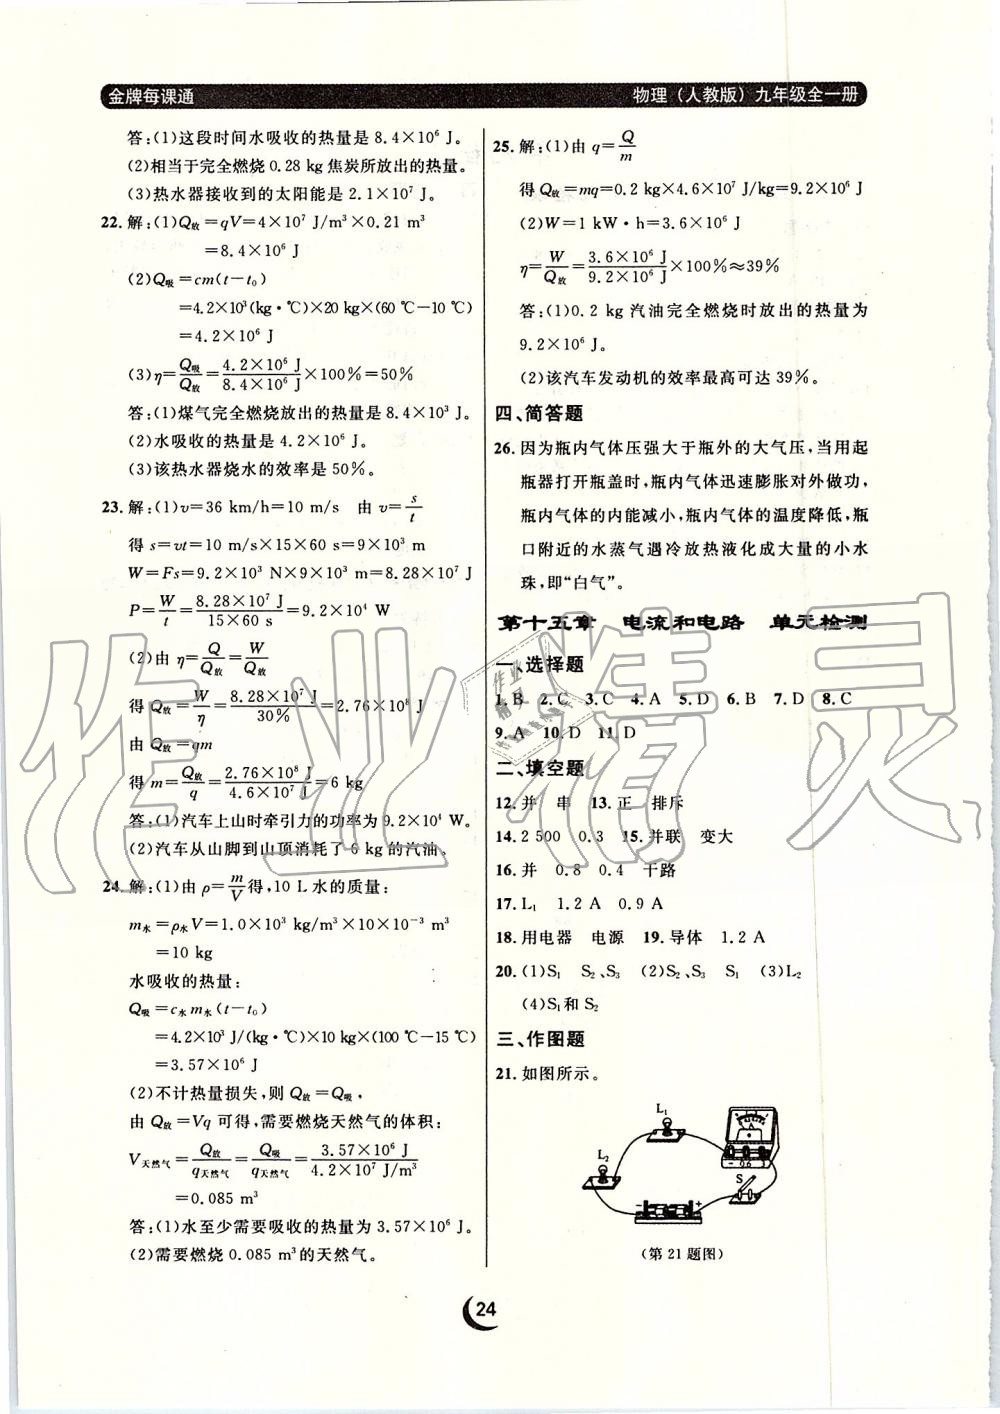 金牌每课通
物理（人教版）九年级全一册
答:(1)这段时间水吸收的热量是 8.4×10⁶ J。
(2)相当于完全燃烧 0.28 kg 焦炭所放出的热量。
(3)热水器接收到的太阳能是 2.1×10⁷ J。
22. 解:(1)Q放=qV=4×10⁷ J/m³×0.21 m³
=8.4×10⁶ J
(2)Q吸=cm(t-t₀)
=4.2×10³(kg·℃)×20 kg×(60 ℃-10 ℃)
=4.2×10⁶ J
(3)η=Q吸/Q放=4.2×10⁶ J/8.4×10⁶ J×100%=50%
答:(1)煤气完全燃烧放出的热量是 8.4×10³ J。
(2)水吸收的热量是 4.2×10⁶ J。
(3)该热水器烧水的效率是 50%。
23. 解:(1)v=36 km/h=10 m/s 由 v=s/t
得 s=vt=10 m/s×15×60 s=9×10³ m
W=Fs=9.2×10³ N×9×10³ m=8.28×10⁷ J
P=W/t=8.28×10⁷ J/15×60 s=9.2×10⁴ W
(2)由 η=Q/Q放=W/Q放
得 Q放=W/η=8.28×10⁷ J/30%=2.76×10⁸ J
由 Q放=qm
得 m=Q放/q=2.76×10⁸ J/4.6×10⁷ J=6 kg
答:(1)汽车上山时牵引力的功率为 9.2×10⁴ W。
(2)汽车从山脚到山顶消耗了 6 kg 的汽油。
24. 解:(1)由 ρ=m/V得,10 L 水的质量:
m水=ρ水V=1.0×10³ kg/m³×10×10⁻³ m³
=10 kg
水吸收的热量:
Q吸=c水m水(t-t₀)
=4.2×10³ J/(kg·℃)×10 kg×(100 ℃-15 ℃)
=3.57×10⁶ J
(2)不计热量损失,则 Q放=Q吸,
由 Q放=Vq 可得,需要燃烧天然气的体积:
V天然气=Q放/q天然气=Q吸/q天然气=3.57×10⁶ J/4.2×10⁷ J/m³
=0.085 m³
答:(1)水至少需要吸收的热量为 3.57×10⁶ J。
(2)需要燃烧 0.085 m³的天然气。
25. 解:(1)由 q=Q/m
得 Q放=mq=0.2 kg×4.6×10⁷ J/kg=9.2×10⁶ J
(2)W=1 kW·h=3.6×10⁶ J
η=W/Q放=3.6×10⁶ J/9.2×10⁶ J×100%≈39%
答:(1)0.2 kg 汽油完全燃烧时放出的热量为
9.2×10⁶ J。
(2)该汽车发动机的效率最高可达 39%。
四、简答题
26. 因为瓶内气体压强大于瓶外的大气压,当用起
瓶器打开瓶盖时,瓶内气体迅速膨胀对外做功,
瓶内气体的内能减小,瓶内气体的温度降低,瓶
口附近的水蒸气遇冷放热液化成大量的小水
珠,即“白气”。
第十五章 电流和电路 单元检测
一、选择题
1. B 2. C 3. C 4. A 5. D 6. B 7. D 8. C
9. A 10. D 11. D
二、填空题
12. 并 串 13. 正 排斥
14. 2 500 0.3 15. 并联 变大
16. 并 0.8 0.4 干路
17. L₁ 1.2 A 0.9 A
18. 用电器 电源 19. 导体 1.2 A
20. (1)S₁ S₂、S₃ (2)S₂、S₃ S₁ (3)L₂
(4)S₁和 S₂
三、作图题
21. 如图所示。
L₁
A
- 0.6 3
L₂
S
- +
(第 21 题图)
24
作业精灵